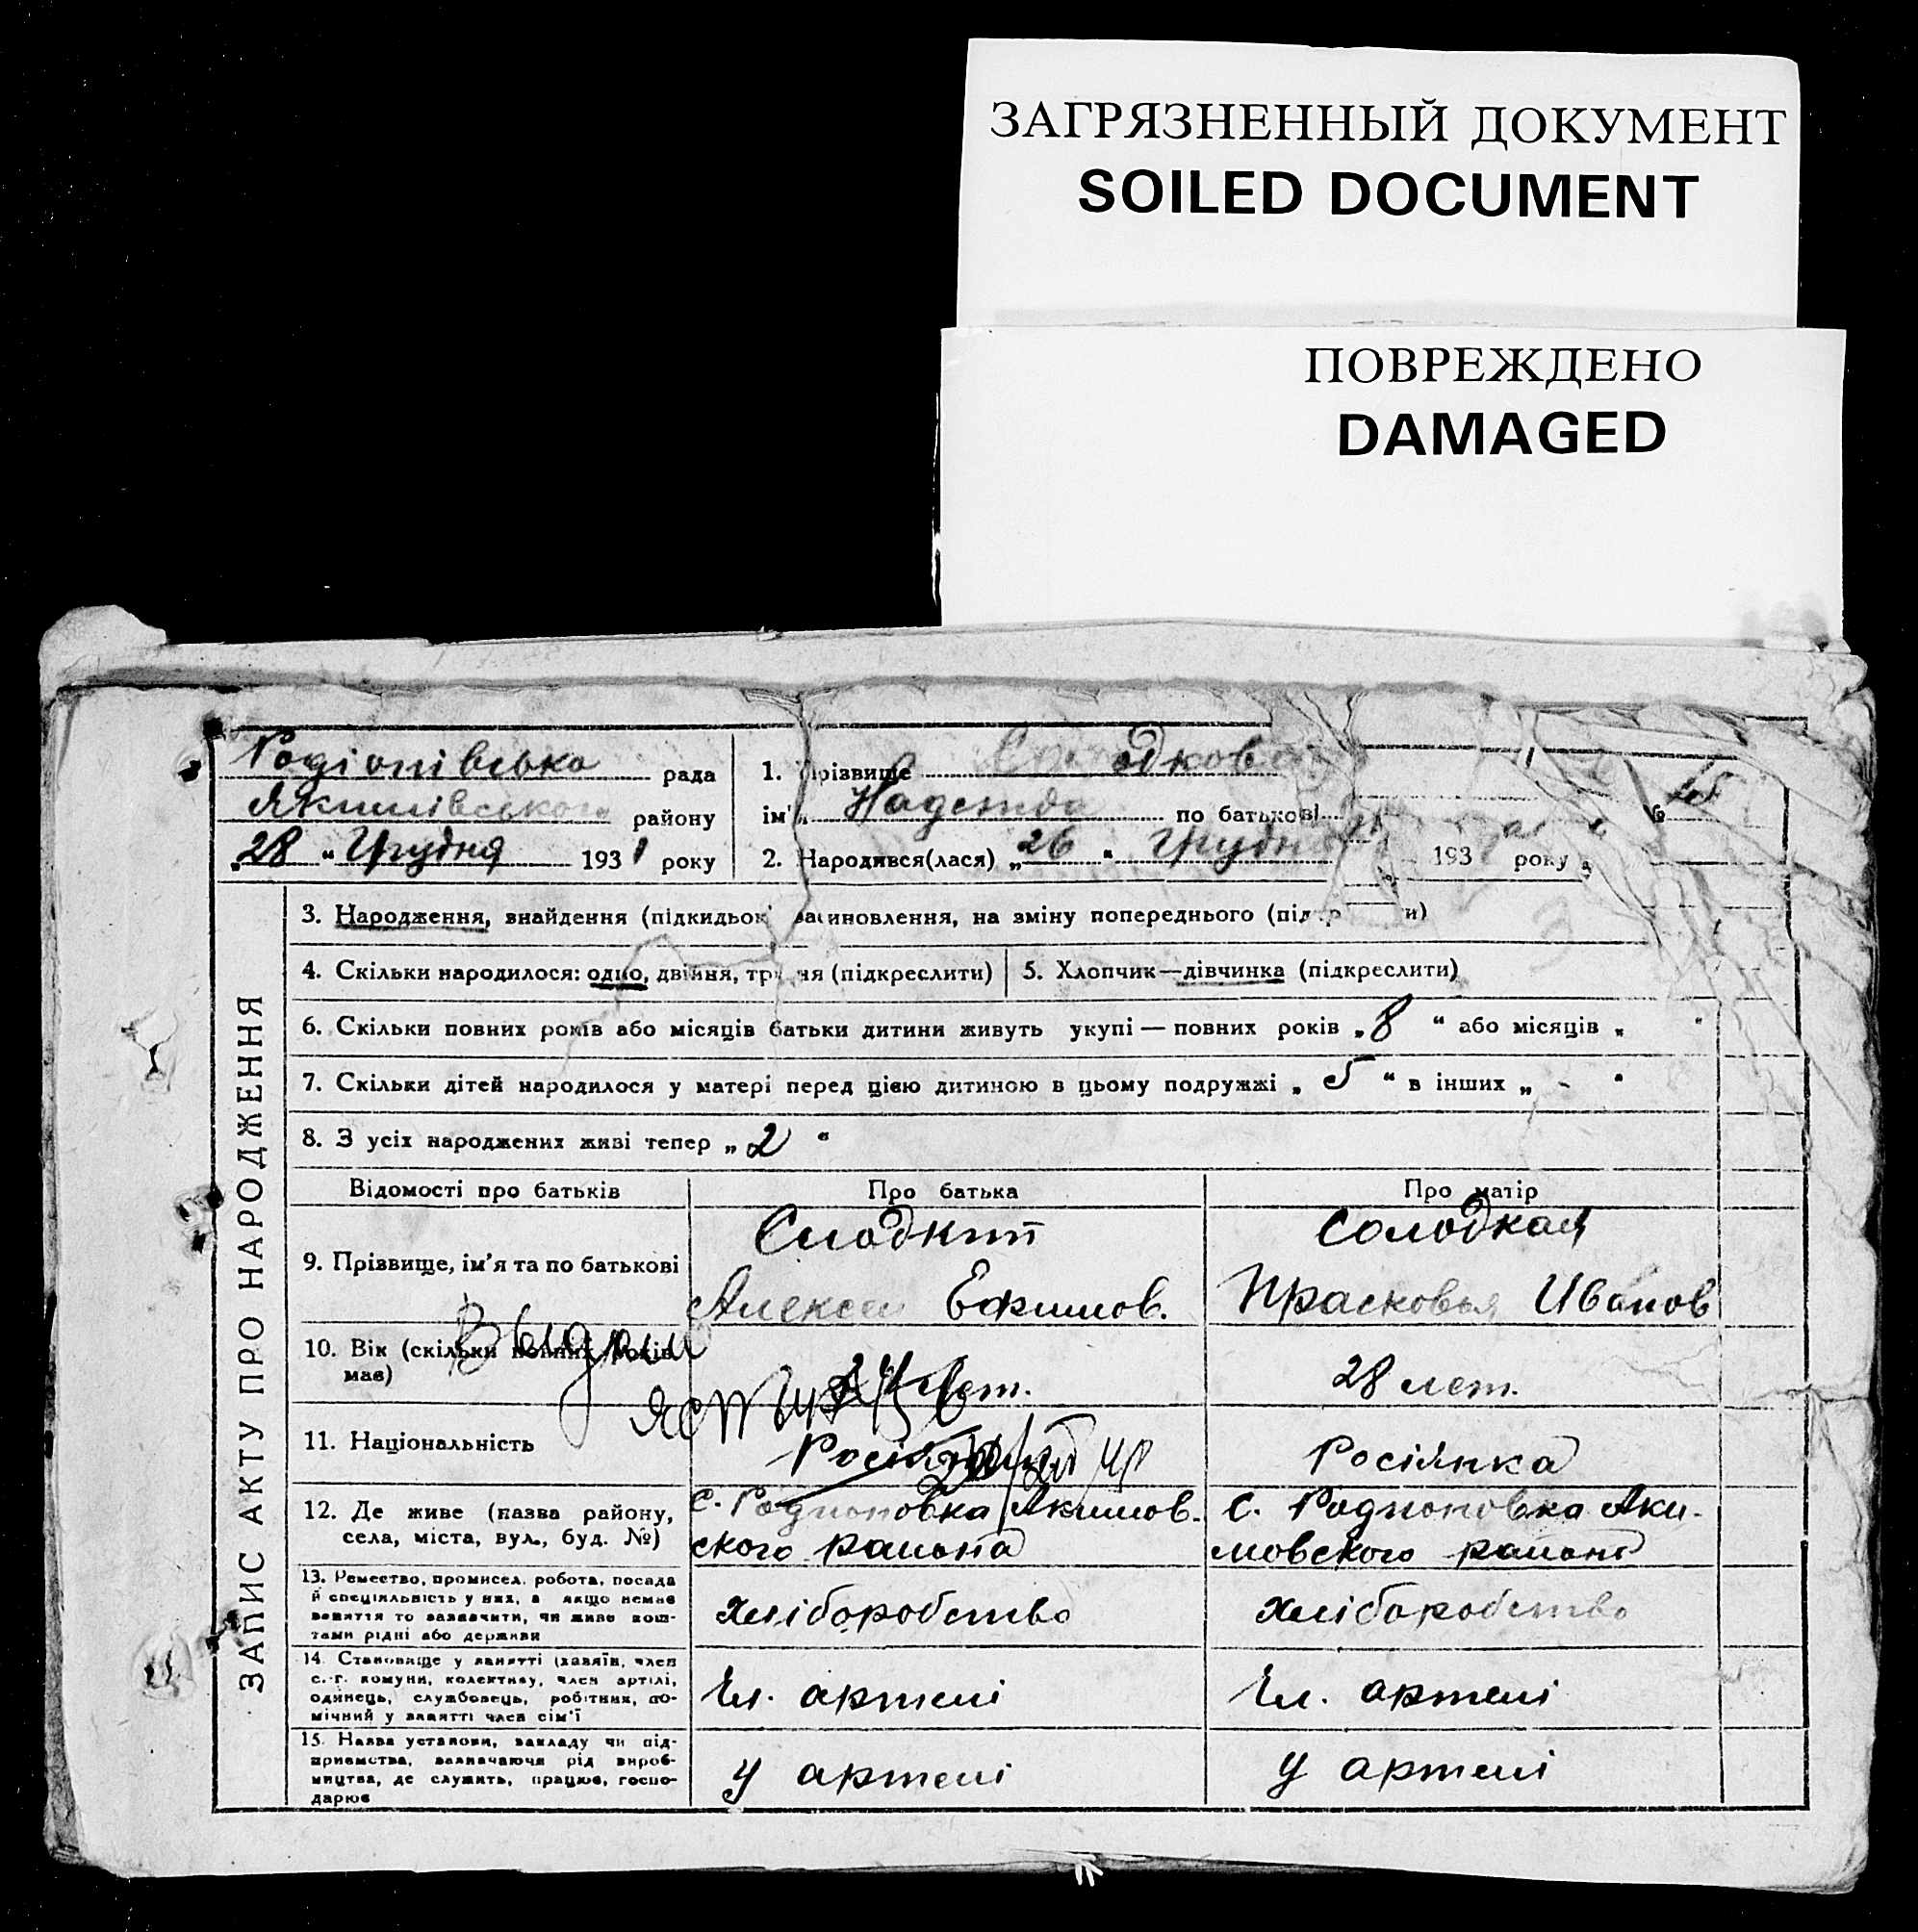 ЗАГРЯЗНЕННЫЙ ДОКУМЕНТ
SOILED DOCUMENT
ПОВРЕЖДЕНО
DAMAGED
ЗАПИС АКТУ ПРО НАРОДЖЕННЯ
Родіонівська рада
Якимівського району
„28 “ Грудня 1931 року
1. Прізвище
ім'я Надежда по батькові
2. Народився(лася) „26 “ Грудня 193 року
№ 15
3. Народження, внайдення (підкидьок) на зміну попереднього
4. Скільки народилося: одно, двійня, трійня (підкреслити)
5. Хлопчик—дівчинка (підкреслити)
6. Скільки повних років або місяців батьки дитини живуть укупі — повних років „8 “ або місяців „ “
7. Скільки дітей народилося у матері перед цією дитиною в цьому подружжі „ 5 “ в інших „ - “
8. З усіх народжених живі тепер „ 2 “
Відомості про батьків
Про батька
Про матір
9. Прізвище, ім'я та по батькові
Слодкий
Алексей Ефимов.
Солодкая
Прасковья Иванов
10. Вік (скільки повних років має)
лет.
28 лет.
11. Національність
Росіянка
12. Де живе (назва району,
села, міста, вул., буд. №)
с. Родионовка Акимов-
ского района
с. Родионовка Аки-
мовского района
13. Ремество, промисел, робота, посада
й спеціяльність у них, а якщо немає
заняття то зазначити, чи живе кош-
тами рідні або держави
хліборобство
хліборобство
14. Становище у занятті (хазяїн, член
с.-г. комуни, колективу, член артілі,
одинець, службовець, робітник, по-
мічний у занятті член сім'ї
Чл. артелі
Чл. артелі
15. Назва установи, закладу чи під-
приємства, зазначаючи рід вироб-
ництва, де служить, працює, госпо-
дарює
У артелі
У артелі